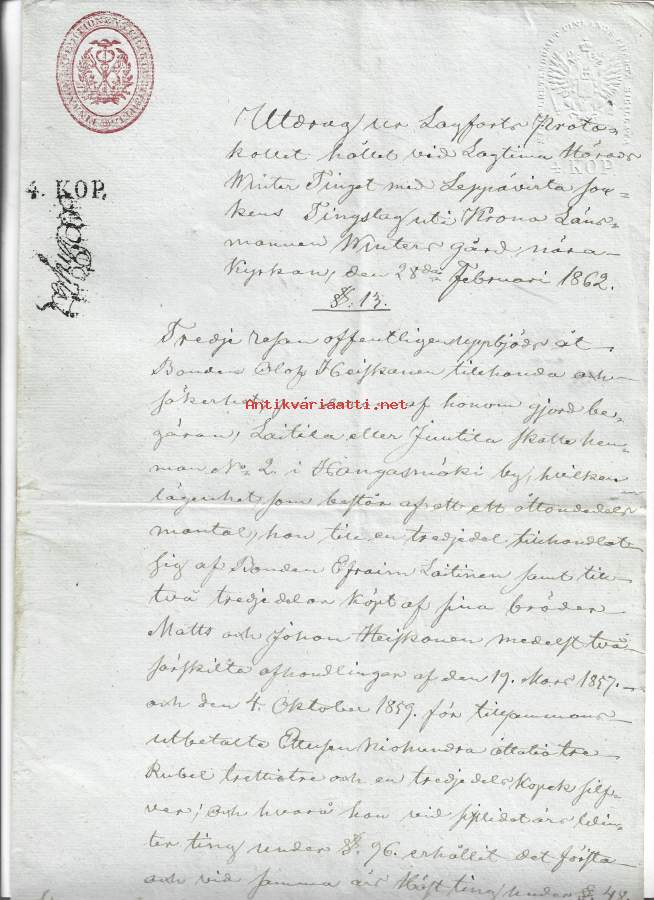 4. KOP.
4 KOP.
Utdrag ur Lagfarts Proto-
kollet hållet vid Lagtima Härads
Winter Tinget med Leppävirta Soc-
kens Tingslag uti Krono Läns-
mannen Winters gård, nära
Kyrkan, den 28de Februari 1862.
§. 13.
Tredje resan offentligen uppbjöds åt
Bonden Olof Heiskanen tillhanda och
säkerhet af honom gjord be-
gäran, Laitila eller Juutila skatte hem-
man No 2. i Kangasmäki by, hvilken
lägenhet som består af ett ett åttondedels
mantal, han till en tredjedel tillhandlat
sig af Bonden Efraim Laitinen samt till
två tredjedelar köpt af sina bröder
Matts och Johan Heiskanen medelst två
särskilta afhandlingar af den 19. Mars 1857.
och den 4. Oktober 1859. för tillsammans
utbetalte Ettusen Niohundra åttatiotre
Rubel trettiotre och en tredjedels Kopek silf-
ver; och hvarå han vid sistlidet års Win-
ter ting under §. 96. erhållit det första
och vid samma års Höst ting under §. 48.
Antikvariaatti.net